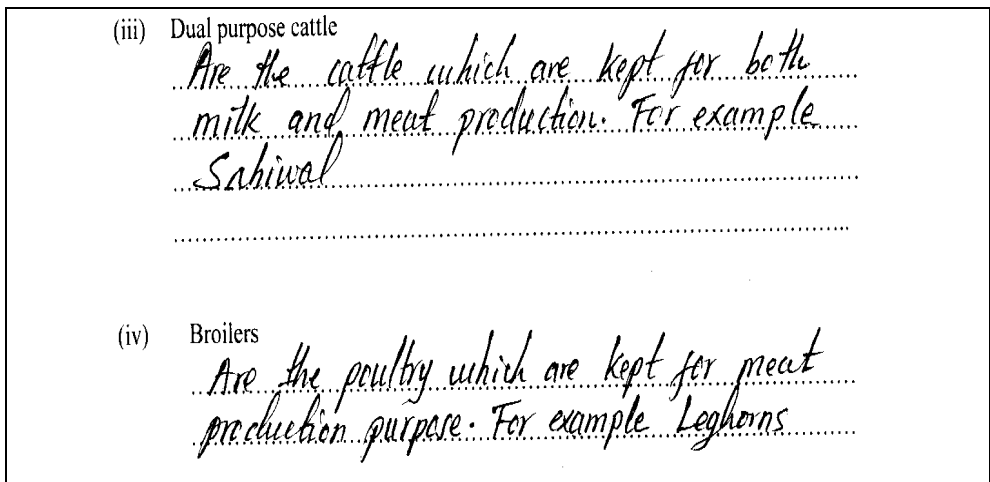 (iii) Dual purpose cattle
Are the cattle which are kept for both
milk and meat production. For example
Sahiwal
(iv) Broilers
Are the poultry which are kept for meat
production purpose. For example Leghorns